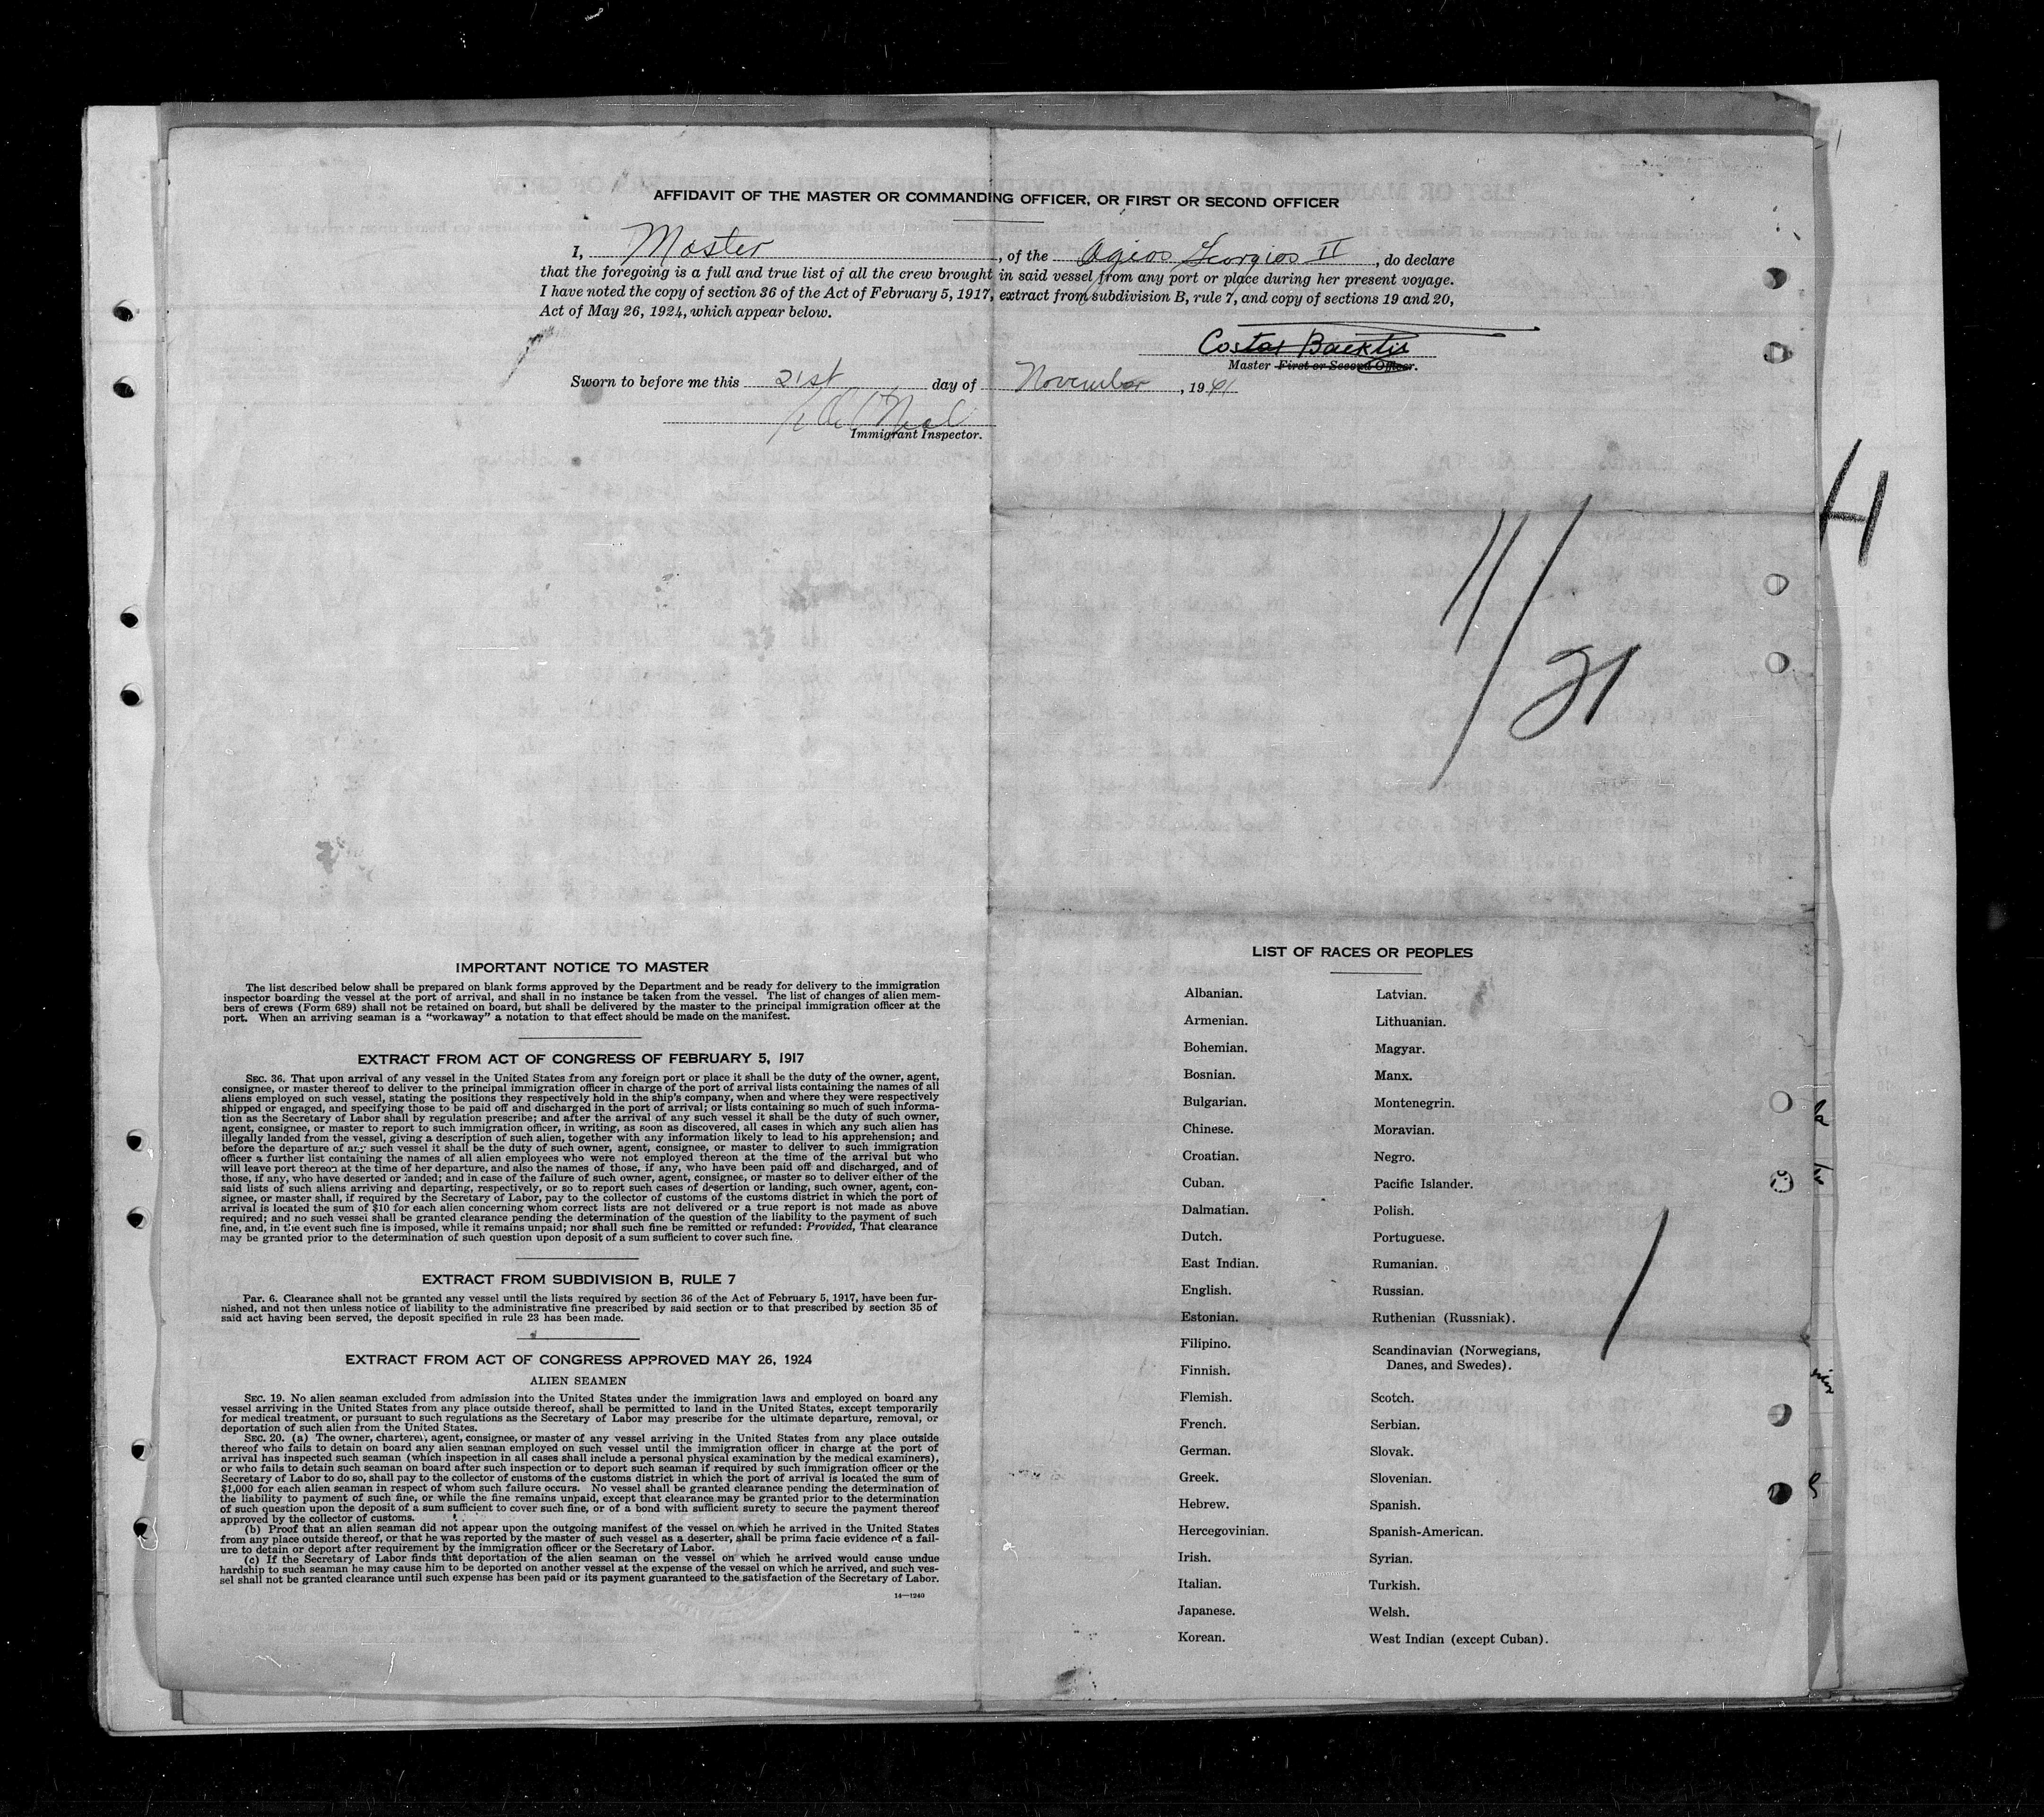 AFFIDAVIT OF THE MASTER OR COMMANDING OFFICER, OR FIRST OR SECOND OFFICER
I, Master, of the Agios Georgios II, do declare
that the foregoing is a full and true list of all the crew brought in said vessel from any port or place during her present voyage.
I have noted the copy of section 36 of the Act of February 5, 1917, extract from subdivision B, rule 7, and copy of sections 19 and 20,
Act of May 26, 1924, which appear below.
Costas
Master First or Second Officer.
Sworn to before me this 21st day of November, 1941
Immigrant Inspector.
H
11/21
IMPORTANT NOTICE TO MASTER
The list described below shall be prepared on blank forms approved by the Department and be ready for delivery to the immigration
inspector boarding the vessel at the port of arrival, and shall in no instance be taken from the vessel. The list of changes of alien mem-
bers of crews (Form 689) shall not be retained on board, but shall be delivered by the master to the principal immigration officer at the
port. When an arriving seaman is a "workaway" a notation to that effect should be made on the manifest.
EXTRACT FROM ACT OF CONGRESS OF FEBRUARY 5, 1917
SEC. 36. That upon arrival of any vessel in the United States from any foreign port or place it shall be the duty of the owner, agent,
consignee, or master thereof to deliver to the principal immigration officer in charge of the port of arrival lists containing the names of all
aliens employed on such vessel, stating the positions they respectively hold in the ship's company, when and where they were respectively
shipped or engaged, and specifying those to be paid off and discharged in the port of arrival; or lists containing so much of such informa-
tion as the Secretary of Labor shall by regulation prescribe; and after the arrival of any such vessel it shall be the duty of such owner,
agent, consignee, or master to report to such immigration officer, in writing, as soon as discovered, all cases in which any such alien has
illegally landed from the vessel, giving a description of such alien, together with any information likely to lead to his apprehension; and
before the departure of any such vessel it shall be the duty of such owner, agent, consignee, or master to deliver to such immigration
officer a further list containing the names of all alien employees who were not employed thereon at the time of the arrival but who
will leave port thereon at the time of her departure, and also the names of those, if any, who have been paid off and discharged, and of
those, if any, who have deserted or landed; and in case of the failure of such owner, agent, consignee, or master so to deliver either of the
said lists of such aliens arriving and departing, respectively, or so to report such cases of desertion or landing, such owner, agent, con-
signee, or master shall, if required by the Secretary of Labor, pay to the collector of customs of the customs district in which the port of
arrival is located the sum of $10 for each alien concerning whom correct lists are not delivered or a true report is not made as above
required; and no such vessel shall be granted clearance pending the determination of the question of the liability to the payment of such
fine, and, in the event such fine is imposed, while it remains unpaid; nor shall such fine be remitted or refunded: Provided, That clearance
may be granted prior to the determination of such question upon deposit of a sum sufficient to cover such fine.
EXTRACT FROM SUBDIVISION B, RULE 7
Par. 6. Clearance shall not be granted any vessel until the lists required by section 36 of the Act of February 5, 1917, have been fur-
nished, and not then unless notice of liability to the administrative fine prescribed by said section or to that prescribed by section 35 of
said act having been served, the deposit specified in rule 23 has been made.
EXTRACT FROM ACT OF CONGRESS APPROVED MAY 26, 1924
ALIEN SEAMEN
SEC. 19. No alien seaman excluded from admission into the United States under the immigration laws and employed on board any
vessel arriving in the United States from any place outside thereof, shall be permitted to land in the United States, except temporarily
for medical treatment, or pursuant to such regulations as the Secretary of Labor may prescribe for the ultimate departure, removal, or
deportation of such alien from the United States.
SEC. 20. (a) The owner, charterer, agent, consignee, or master of any vessel arriving in the United States from any place outside
thereof who fails to detain on board any alien seaman employed on such vessel until the immigration officer in charge at the port of
arrival has inspected such seaman (which inspection in all cases shall include a personal physical examination by the medical examiners),
or who fails to detain such seaman on board after such inspection or to deport such seaman if required by such immigration officer or the
Secretary of Labor to do so, shall pay to the collector of customs of the customs district in which the port of arrival is located the sum of
$1,000 for each alien seaman in respect of whom such failure occurs. No vessel shall be granted clearance pending the determination of
the liability to payment of such fine, or while the fine remains unpaid, except that clearance may be granted prior to the determination
of such question upon the deposit of a sum sufficient to cover such fine, or of a bond with sufficient surety to secure the payment thereof
approved by the collector of customs.
(b) Proof that an alien seaman did not appear upon the outgoing manifest of the vessel on which he arrived in the United States
from any place outside thereof, or that he was reported by the master of such vessel as a deserter, shall be prima facie evidence of a fail-
ure to detain or deport after requirement by the immigration officer or the Secretary of Labor.
(c) If the Secretary of Labor finds that deportation of the alien seaman on the vessel on which he arrived would cause undue
hardship to such seaman he may cause him to be deported on another vessel at the expense of the vessel on which he arrived, and such ves-
sel shall not be granted clearance until such expense has been paid or its payment guaranteed to the satisfaction of the Secretary of Labor.
14—1240
LIST OF RACES OR PEOPLES
Albanian.
Armenian.
Bohemian.
Bosnian.
Bulgarian.
Chinese.
Croatian.
Cuban.
Dalmatian.
Dutch.
East Indian.
English.
Estonian.
Filipino.
Finnish.
Flemish.
French.
German.
Greek.
Hebrew.
Hercegovinian.
Irish.
Italian.
Japanese.
Korean.
Latvian.
Lithuanian.
Magyar.
Manx.
Montenegrin.
Moravian.
Negro.
Pacific Islander.
Polish.
Portuguese.
Rumanian.
Russian.
Ruthenian (Russniak).
Scandinavian (Norwegians,
Danes, and Swedes).
Scotch.
Serbian.
Slovak.
Slovenian.
Spanish.
Spanish-American.
Syrian.
Turkish.
Welsh.
West Indian (except Cuban).